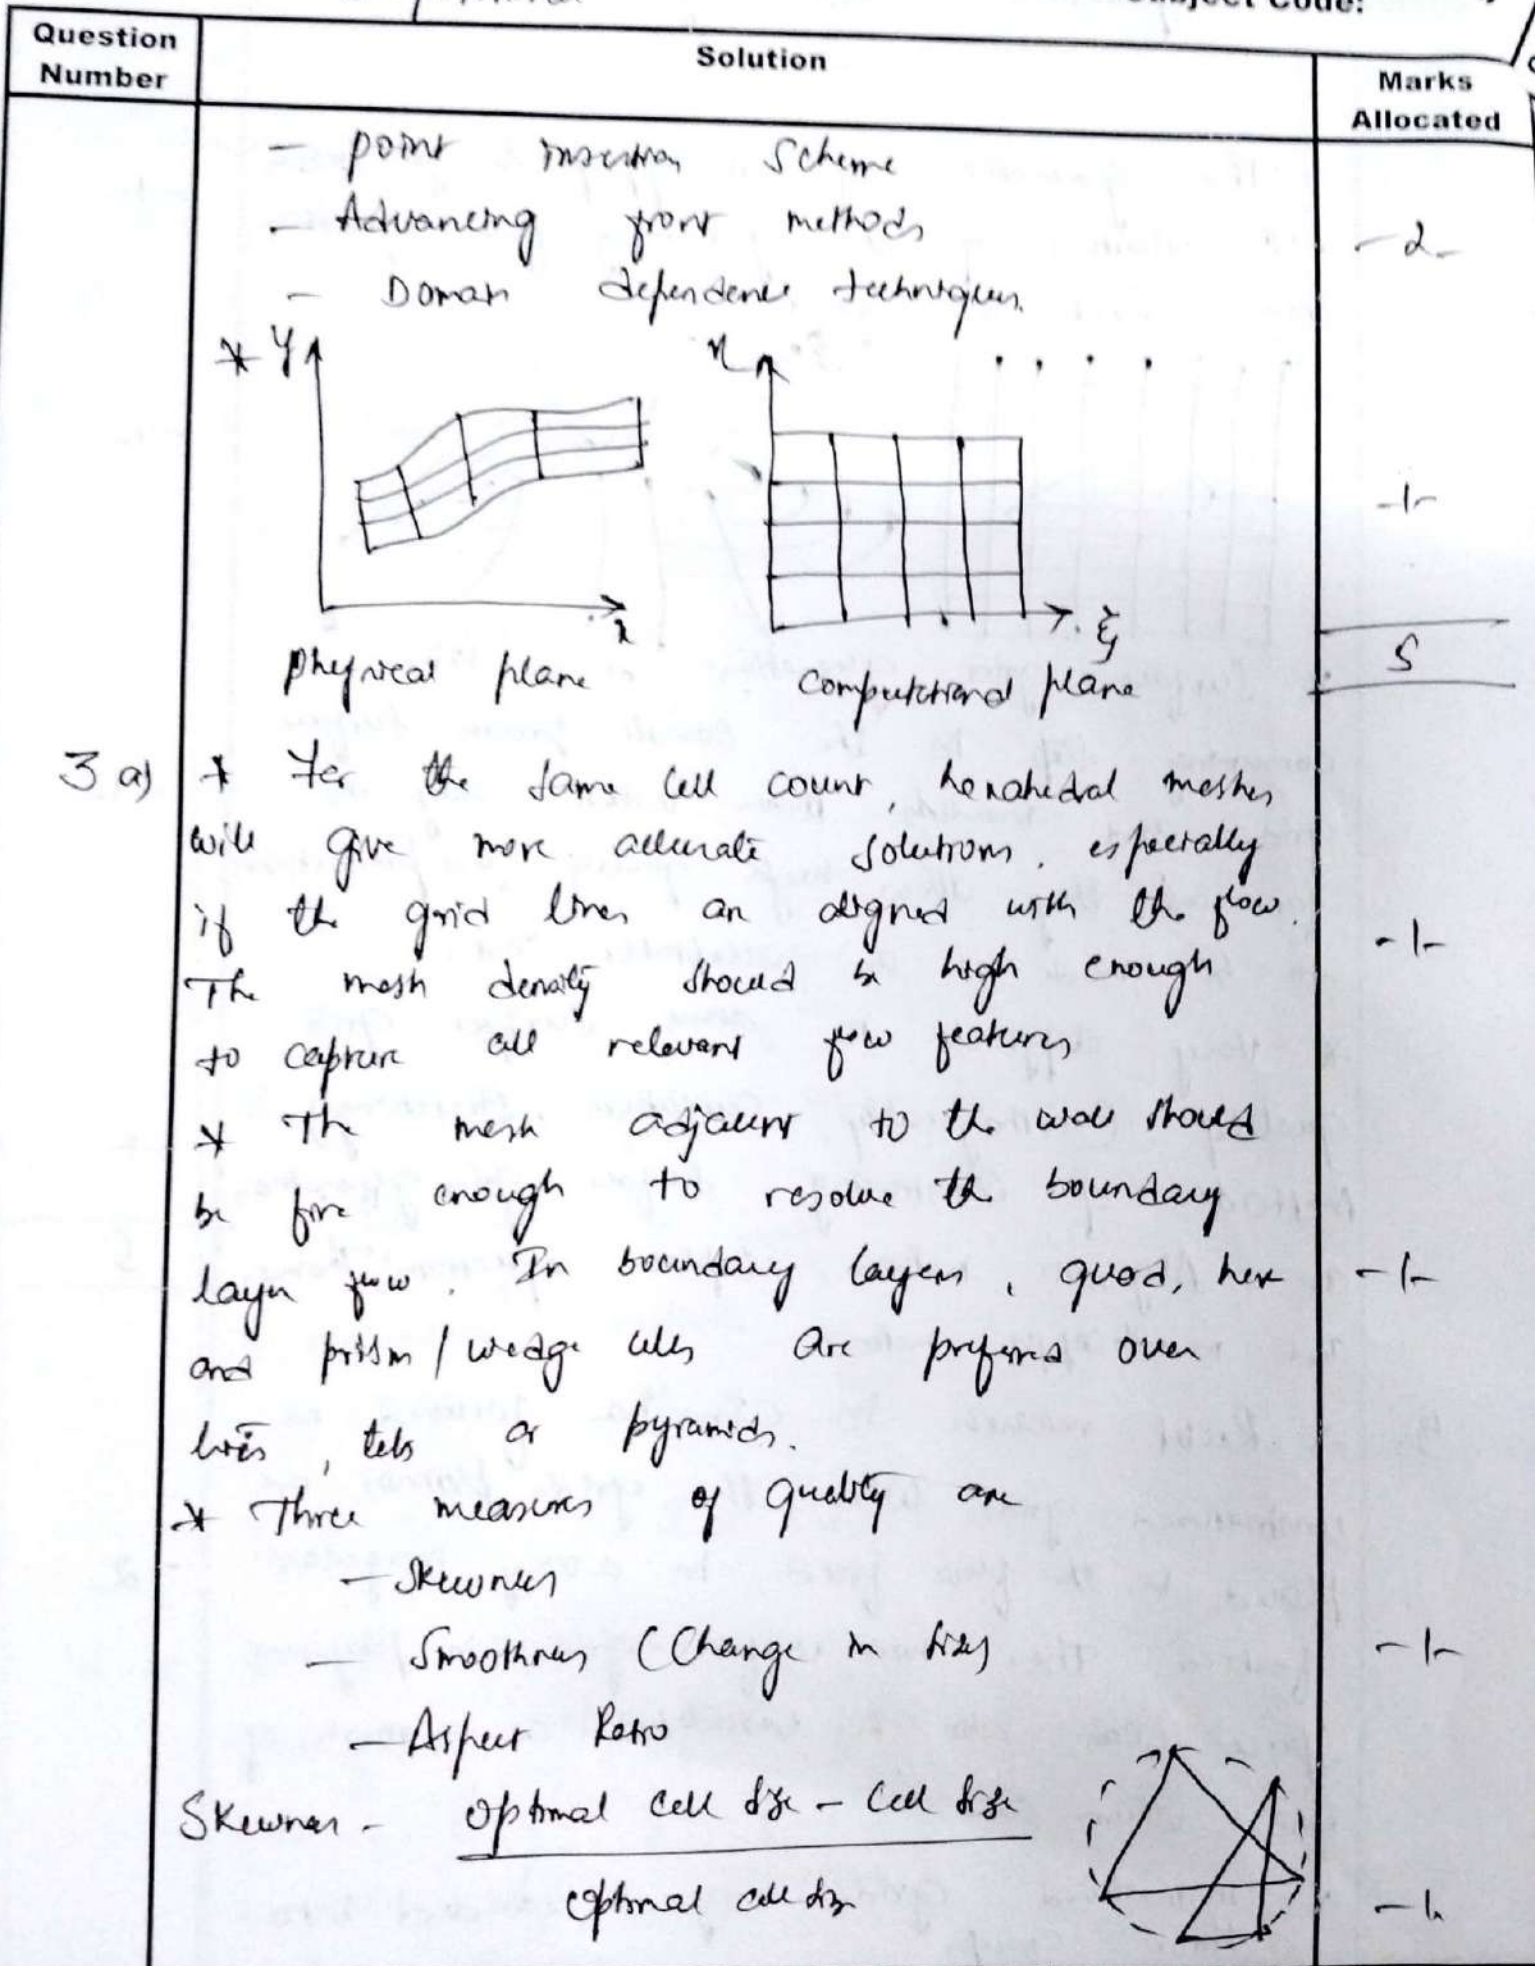 Subject Code:
Question Number
Solution
Marks Allocated
- point insertion Scheme
- Advancing front methods
- 2 -
- Domain dependence techniques.
* y
η
- 1 -
x
ξ
physical plane
computational plane
5
3 a) * For the same cell count, hexahedral meshes
will give more accurate solutions, especially
if the grid lines are aligned with the flow.
- 1 -
The mesh density should be high enough
to capture all relevant flow features
* The mesh adjacent to the wall should
be fine enough to resolve the boundary
layer flow. In boundary layers, quad, hex
- 1 -
and prism / wedge cells are preferred over
tris, tets or pyramids.
* Three measures of quality are
- Skewness
- Smoothness (Change in size)
- 1 -
- Aspect Ratio
Skewness - optimal cell size - cell size
optimal cell size
- 1 -